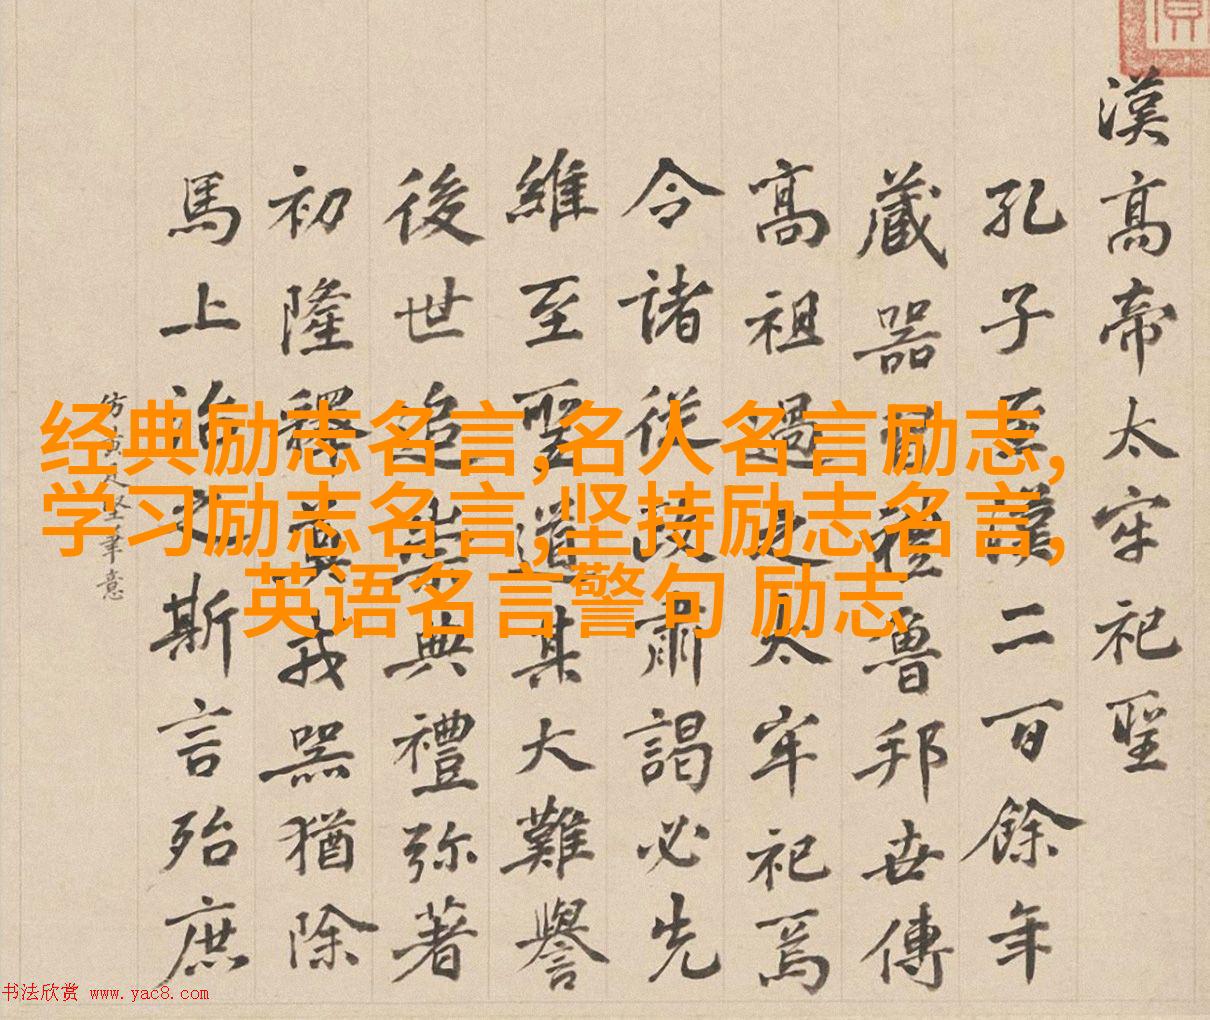 漢高帝太牢祀聖
孔子至漢二百餘年
藏器禮魯邦世傳
高祖過之太牢祀焉
令諸從政肅謁必先
維至聖道其大難譽
後世追崇典禮弥著
初隆釋奠戎器猶除
馬上治之斯言殆庶
仿人筆意
经典励志名言,名人名言励志,
学习励志名言,坚持励志名言,
英语名言警句 励志
书法欣赏 www.yac8.com